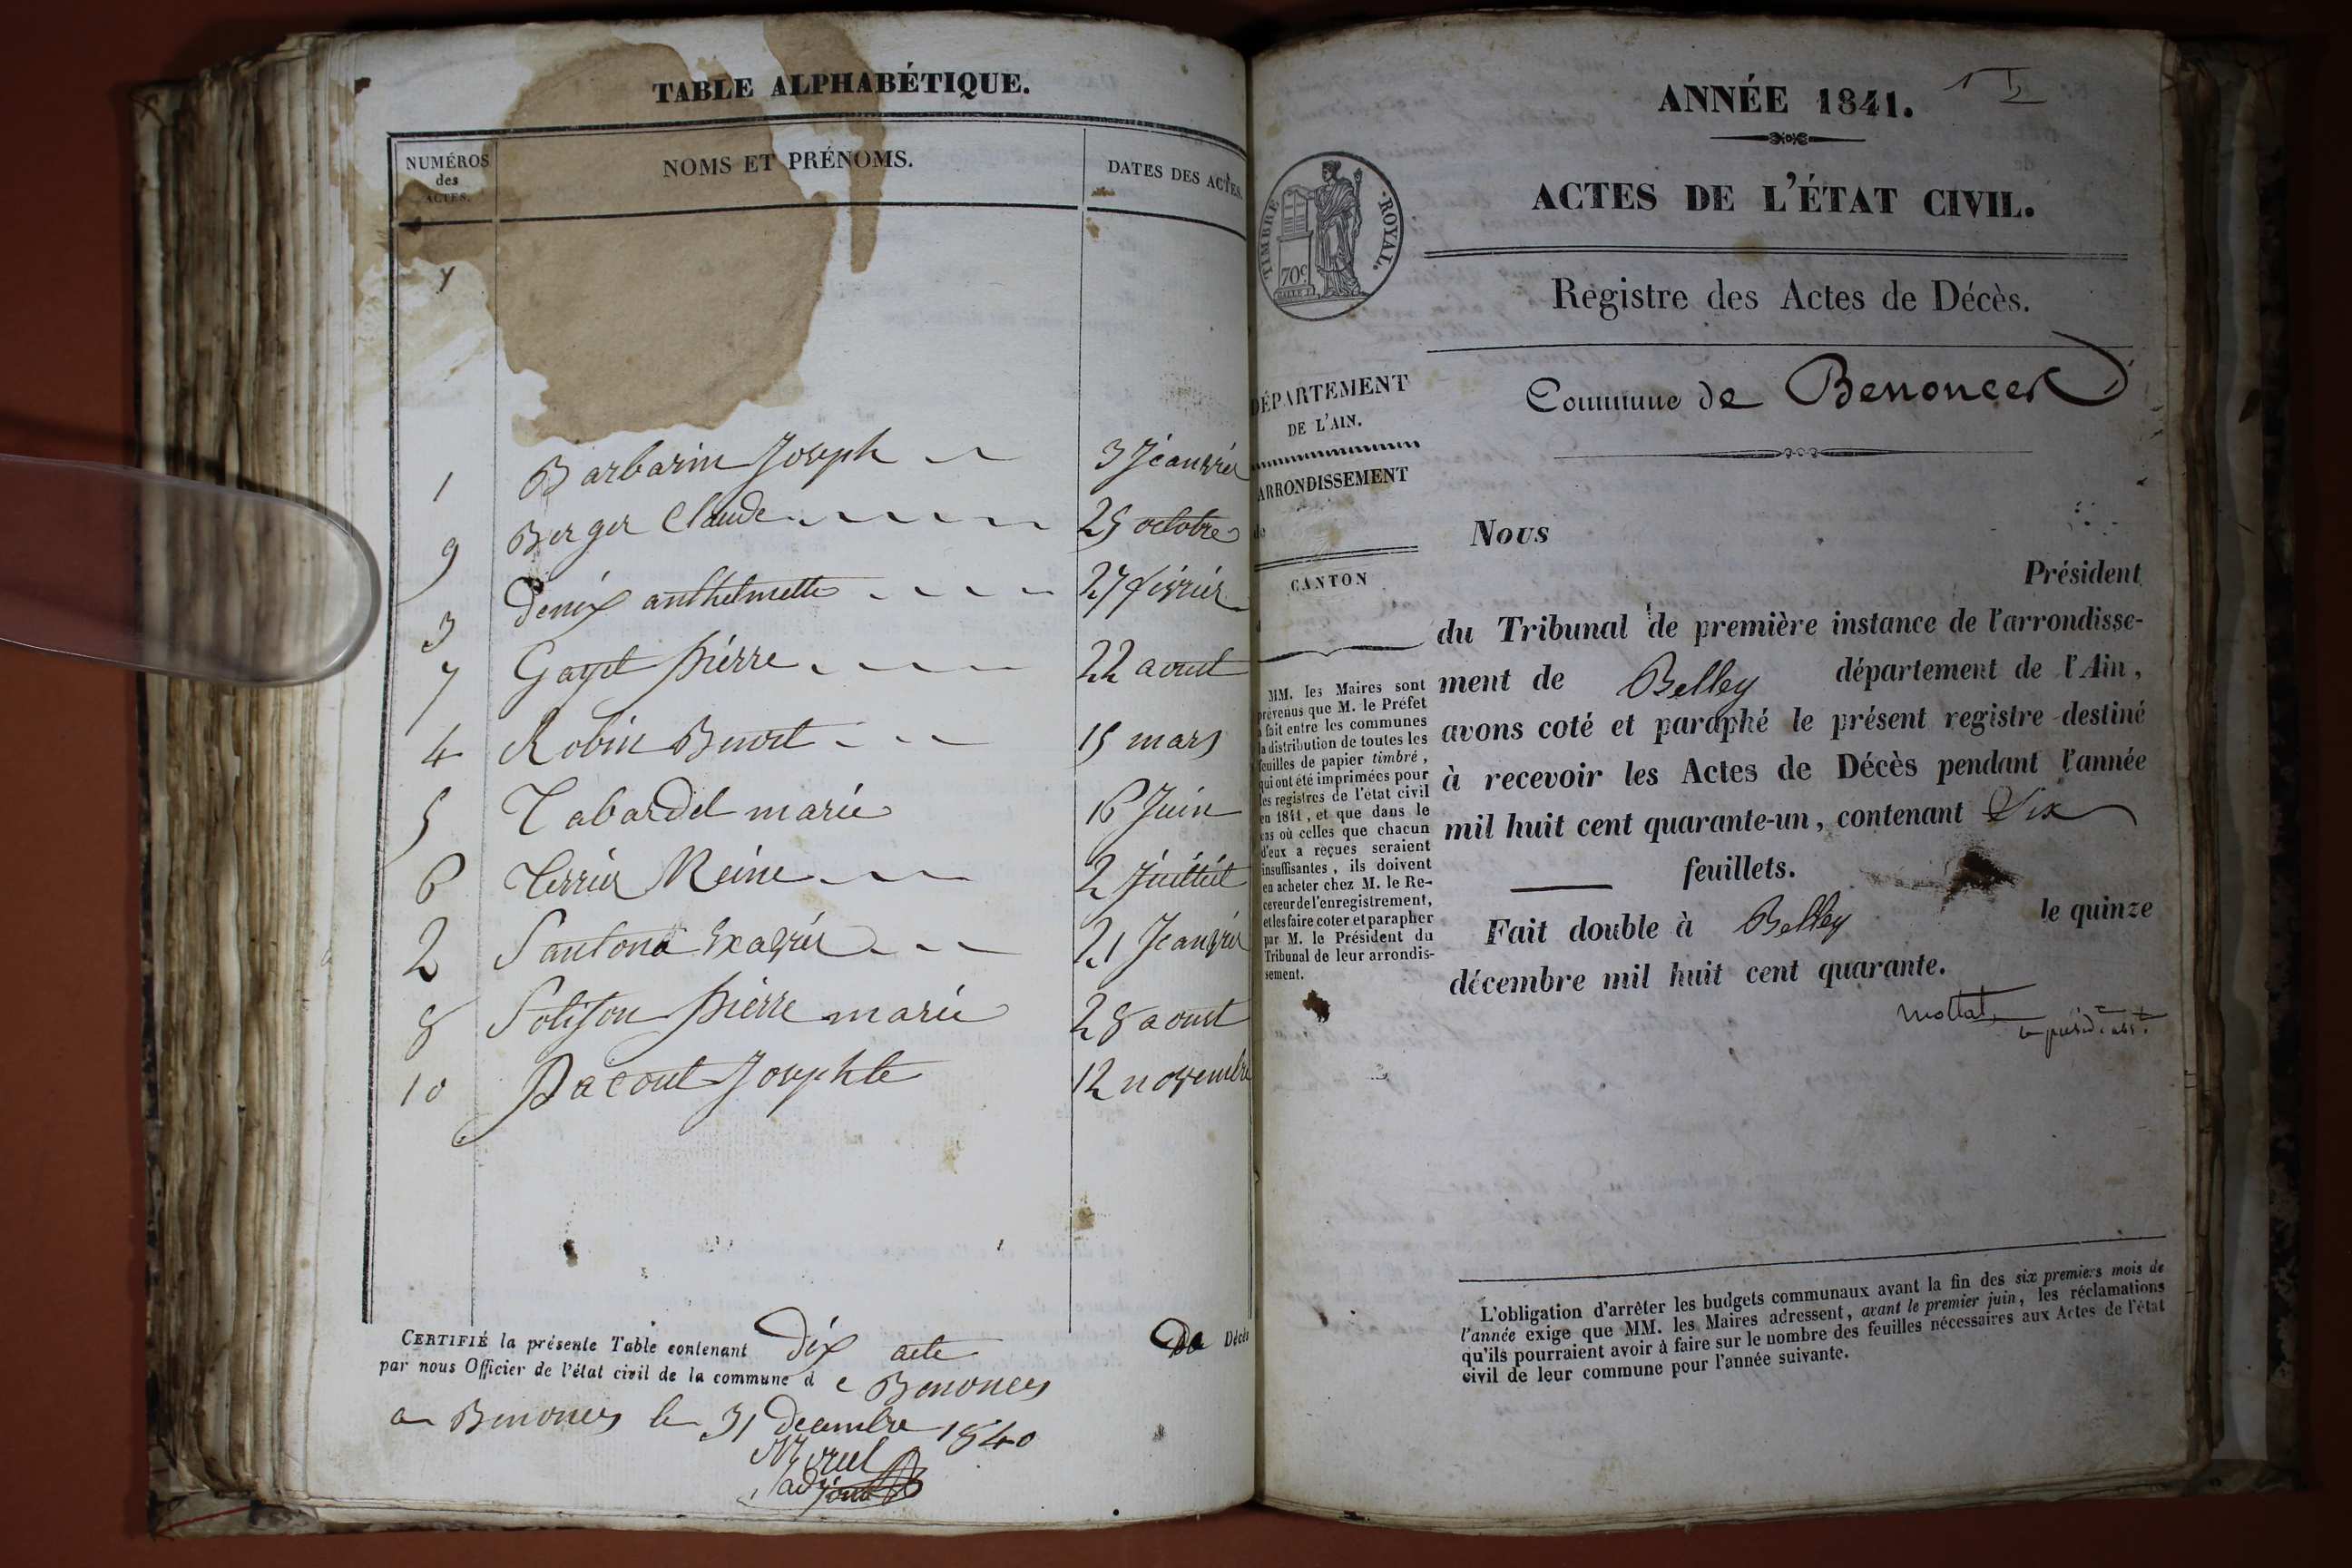 TABLE ALPHABÉTIQUE.
NUMÉROS des ACTES.
NOMS ET PRÉNOMS.
DATES DES ACTES.
1 Barbarin Joseph 3 Jeanvier
9 Berger Claude 25 octobre
3 Denix anthelmette 27 février
7 Gayet pierre 22 aoust
4 Robin Benoit 15 mars
5 Tabardel marie 16 Juin
6 Terrier Reine 2 Juilliet
2 Santona Exavier 21 Jeanvier
8 Solison pierre marie 28 aoust
10 Pacout Josephte 12 novembre
CERTIFIÉ la présente Table contenant Dix acte De Décès
par nous Officier de l'état civil de la commune d e Benonces
a Benonces le 31 decembre 1840
Morel
adjoint
ANNÉE 1841.
ACTES DE L'ÉTAT CIVIL.
TIMBRE ROYAL.
70c
Registre des Actes de Décès.
Commune de Benonces
DÉPARTEMENT
DE L'AIN.
ARRONDISSEMENT
de
CANTON
d
MM. les Maires sont
prévenus que M. le Préfet
a fait entre les communes
la distribution de toutes les
feuilles de papier timbré,
qui ont été imprimées pour
les registres de l'état civil
en 1841, et que dans le
cas où celles que chacun
d'eux a reçues seraient
insuffisantes, ils doivent
en acheter chez M. le Re-
ceveur de l'enregistrement,
et les faire coter et parapher
par M. le Président du
Tribunal de leur arrondis-
sement.
Nous
Président
du Tribunal de première instance de l'arrondisse-
ment de Belley département de l'Ain,
avons coté et paraphé le présent registre destiné
à recevoir les Actes de Décès pendant l'année
mil huit cent quarante-un, contenant Six
feuillets.
Fait double à Belley le quinze
décembre mil huit cent quarante.
L'obligation d'arrêter les budgets communaux avant la fin des six premiers mois de
l'année exige que MM. les Maires adressent, avant le premier juin, les réclamations
qu'ils pourraient avoir à faire sur le nombre des feuilles nécessaires aux Actes de l'état
civil de leur commune pour l'année suivante.